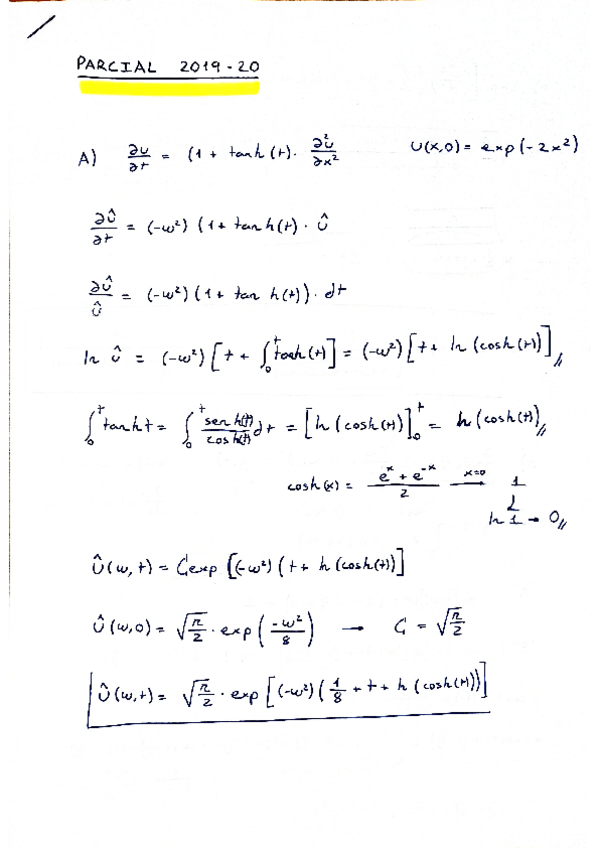 PARCIAL 2019-20
A) ∂u/∂t = (1 + tanh(t). ∂²u/∂x² U(x,0) = exp(-2x²)
∂û/∂t = (-ω²) (1 + tanh(t) · û
∂û/û = (-ω²) (1 + tan h(t)) · dt
ln û = (-ω²) [t + ∫₀ᵗ tanh(t)] = (-ω²) [t + ln (cosh(t))],,
∫₀ᵗ tanh t = ∫₀ᵗ senh(t)/cosh(t) dt = [ln (cosh(t))]₀ᵗ = ln (cosh(t)),,
cosh(x) = (eˣ + e⁻ˣ)/2 —x=0→ 1
ln 1 → 0,,
Û(ω,t) = C exp [(-ω²) (t + ln (cosh(t))]
Û(ω,0) = √(π/2) · exp(-ω²/8) → C = √(π/2)
Û(ω,t) = √(π/2) · exp [(-ω²) (1/8 + t + ln (cosh(t))]